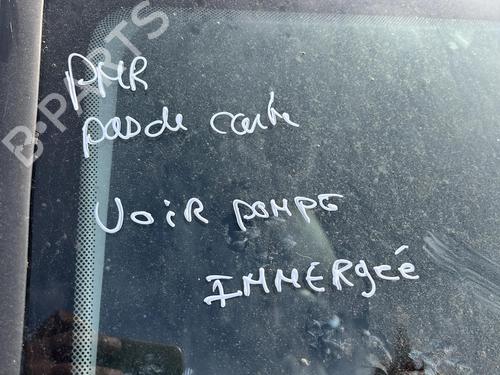 B-PARTS
AMR
pas de carte
VOIR POMPE
IMMERGéé